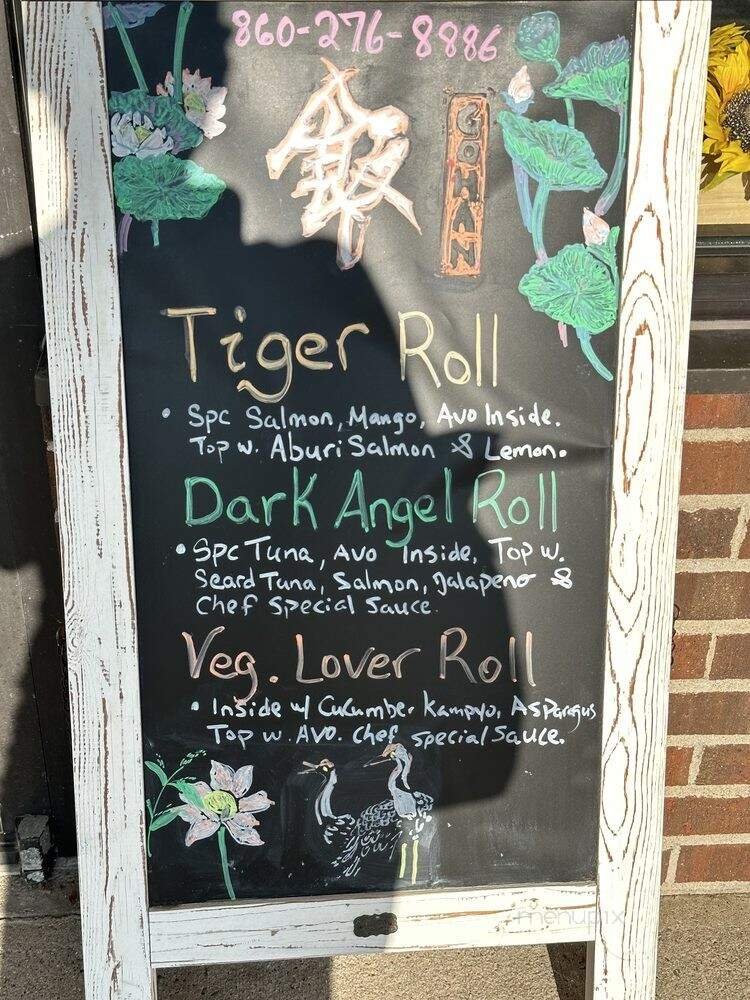 860-276-8886
飯
GOHAN
Tiger Roll
• Spc Salmon, Mango, Avo Inside.
Top w. Aburi Salmon & Lemon.
Dark Angel Roll
• Spc Tuna, Avo Inside, Top w.
Seard Tuna, Salmon, Jalapeno &
Chef Special Sauce.
Veg. Lover Roll
• Inside w/ Cucumber Kampyo, Asparagus
Top w. AVO. Chef special Sauce.
menupix